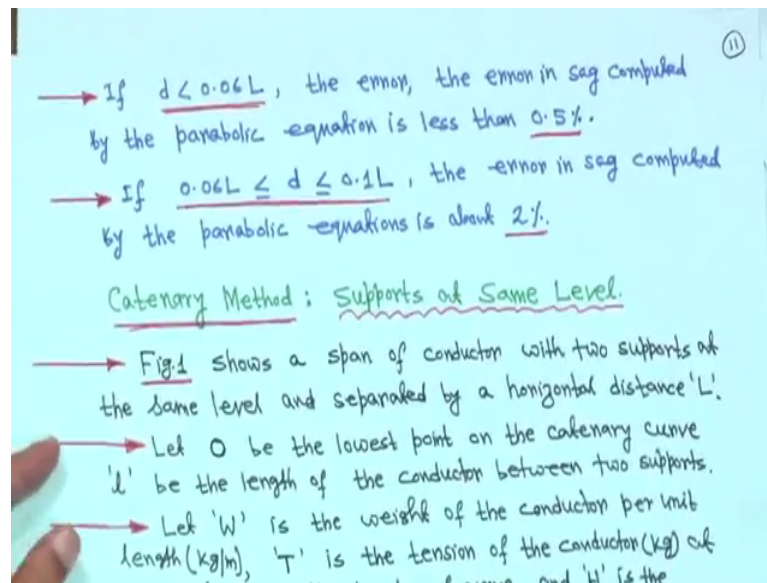 11
→ If d < 0.06L, the error, the error in sag computed
by the parabolic equation is less than 0.5%.
→ If 0.06L ≤ d ≤ 0.1L, the error in sag computed
by the parabolic equations is about 2%.
Catenary Method: Supports at Same Level.
→ Fig.1 shows a span of conductor with two supports at
the same level and separated by a horizontal distance 'L'.
→ Let O be the lowest point on the catenary curve
'l' be the length of the conductor between two supports.
→ Let 'W' is the weight of the conductor per unit
length (kg/m), 'T' is the tension of the conductor (kg) at
and 'H' is the